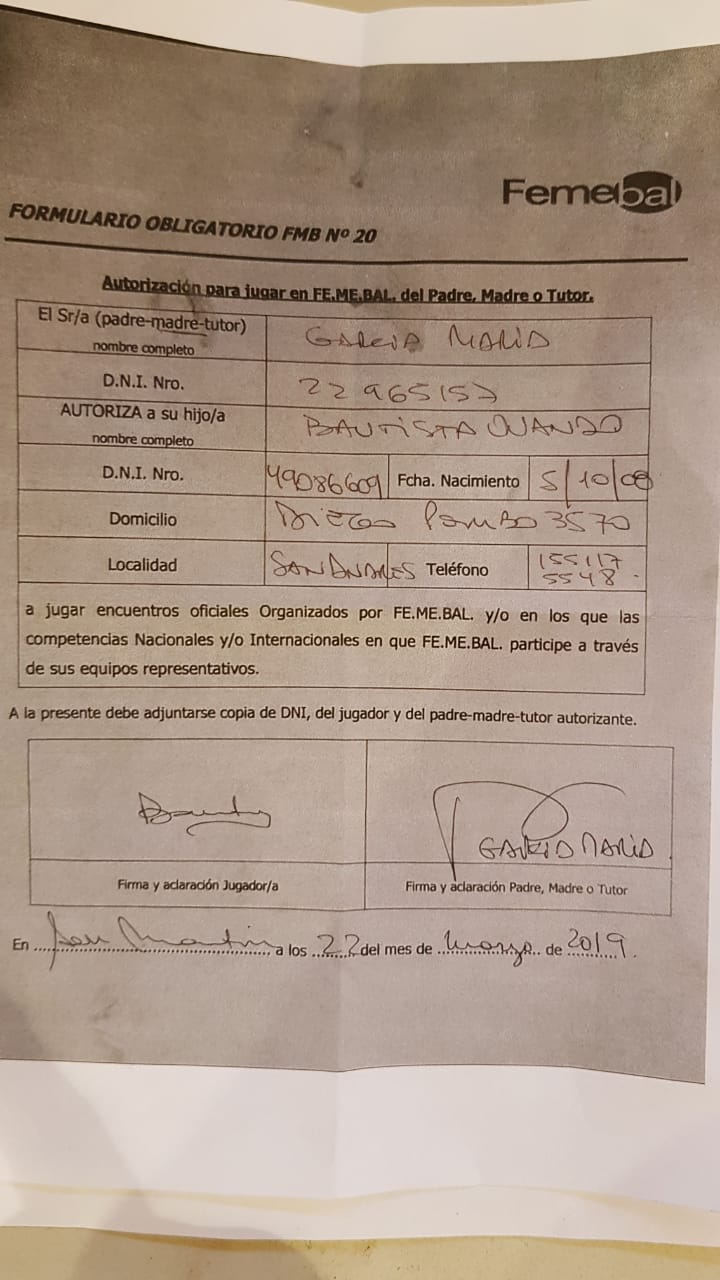 Femebal
FORMULARIO OBLIGATORIO FMB Nº 20
Autorización para jugar en FE.ME.BAL. del Padre, Madre o Tutor.
El Sr/a (padre-madre-tutor) nombre completo GARCIA MARIA
D.N.I. Nro. 22965157
AUTORIZA a su hijo/a nombre completo BAUTISTA OVANDO
D.N.I. Nro. 49086609 Fcha. Nacimiento 5/10/08
Domicilio DIEGO POMBO 3570
Localidad SAN ANDRES Teléfono 155117
5548
a jugar encuentros oficiales Organizados por FE.ME.BAL. y/o en los que las
competencias Nacionales y/o Internacionales en que FE.ME.BAL. participe a través
de sus equipos representativos.
A la presente debe adjuntarse copia de DNI, del jugador y del padre-madre-tutor autorizante.
GARCIA MARIA
Firma y aclaración Jugador/a Firma y aclaración Padre, Madre o Tutor
En San Martin a los 22 del mes de marzo de 2019.